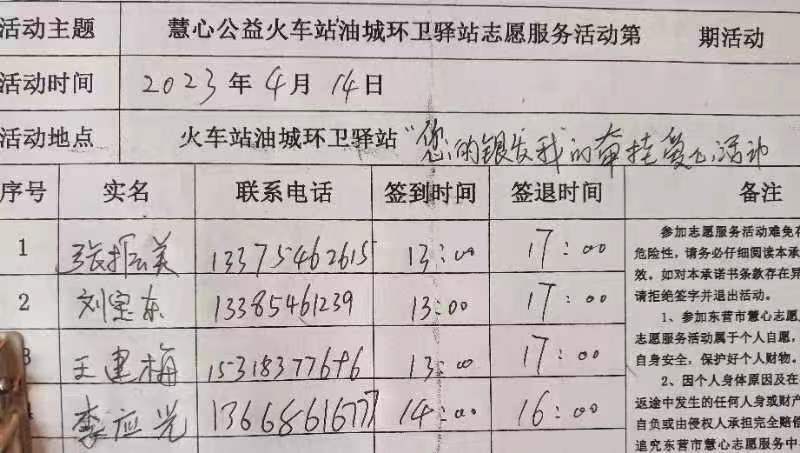 活动主题 慧心公益火车站油城环卫驿站志愿服务活动第 期活动
活动时间 2023年4月14日
活动地点 火车站油城环卫驿站"您的银发我的牵挂爱心活动
序号 实名 联系电话 签到时间 签退时间 备注
1 张振美 13375462615 13:00 17:00
2 刘宝东 13385461239 13:00 17:00
3 王建梅 15318377696 13:00 17:00
李应光 13668616777 14:00 16:00
参加志愿服务活动难免存
危险性,请务必仔细阅读本承
效。如对本承诺书条款存在异
请拒绝签字并退出活动。
1、参加东营市慧心志愿
志愿服务活动属于个人自愿,
自身安全,保护好个人财物。
2、因个人身体原因及在
返途中发生的任何人身或财产
自负或由侵权人承担完全赔偿
追究东营市慧心志愿服务中